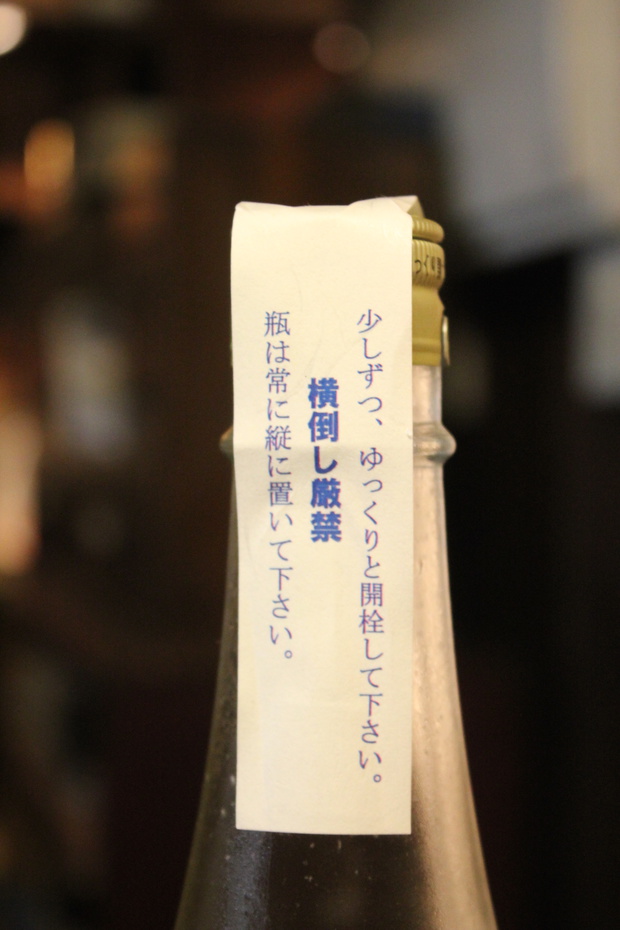 少しずつ、ゆっくりと開栓して下さい。
横倒し厳禁
瓶は常に縦に置いて下さい。